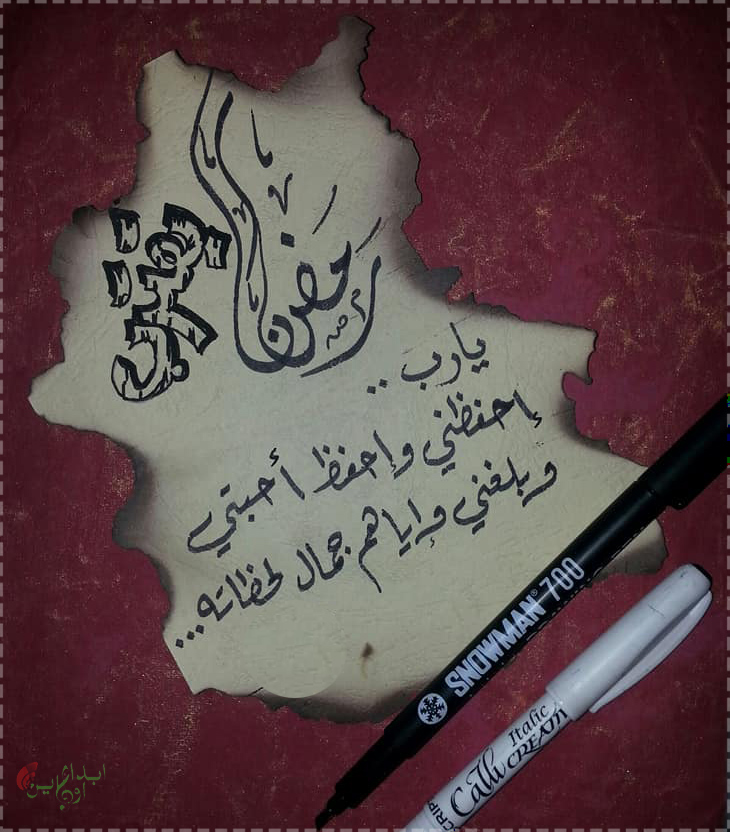 رمضان
يقترب
يارب ..
إحفظني وإحفظ أحبتي
وبلغني وإياهم جمال لحظاته...
SNOWMAN® 700
Calli
Italic
CREATI
SCRIP
ابداع
اون لاين